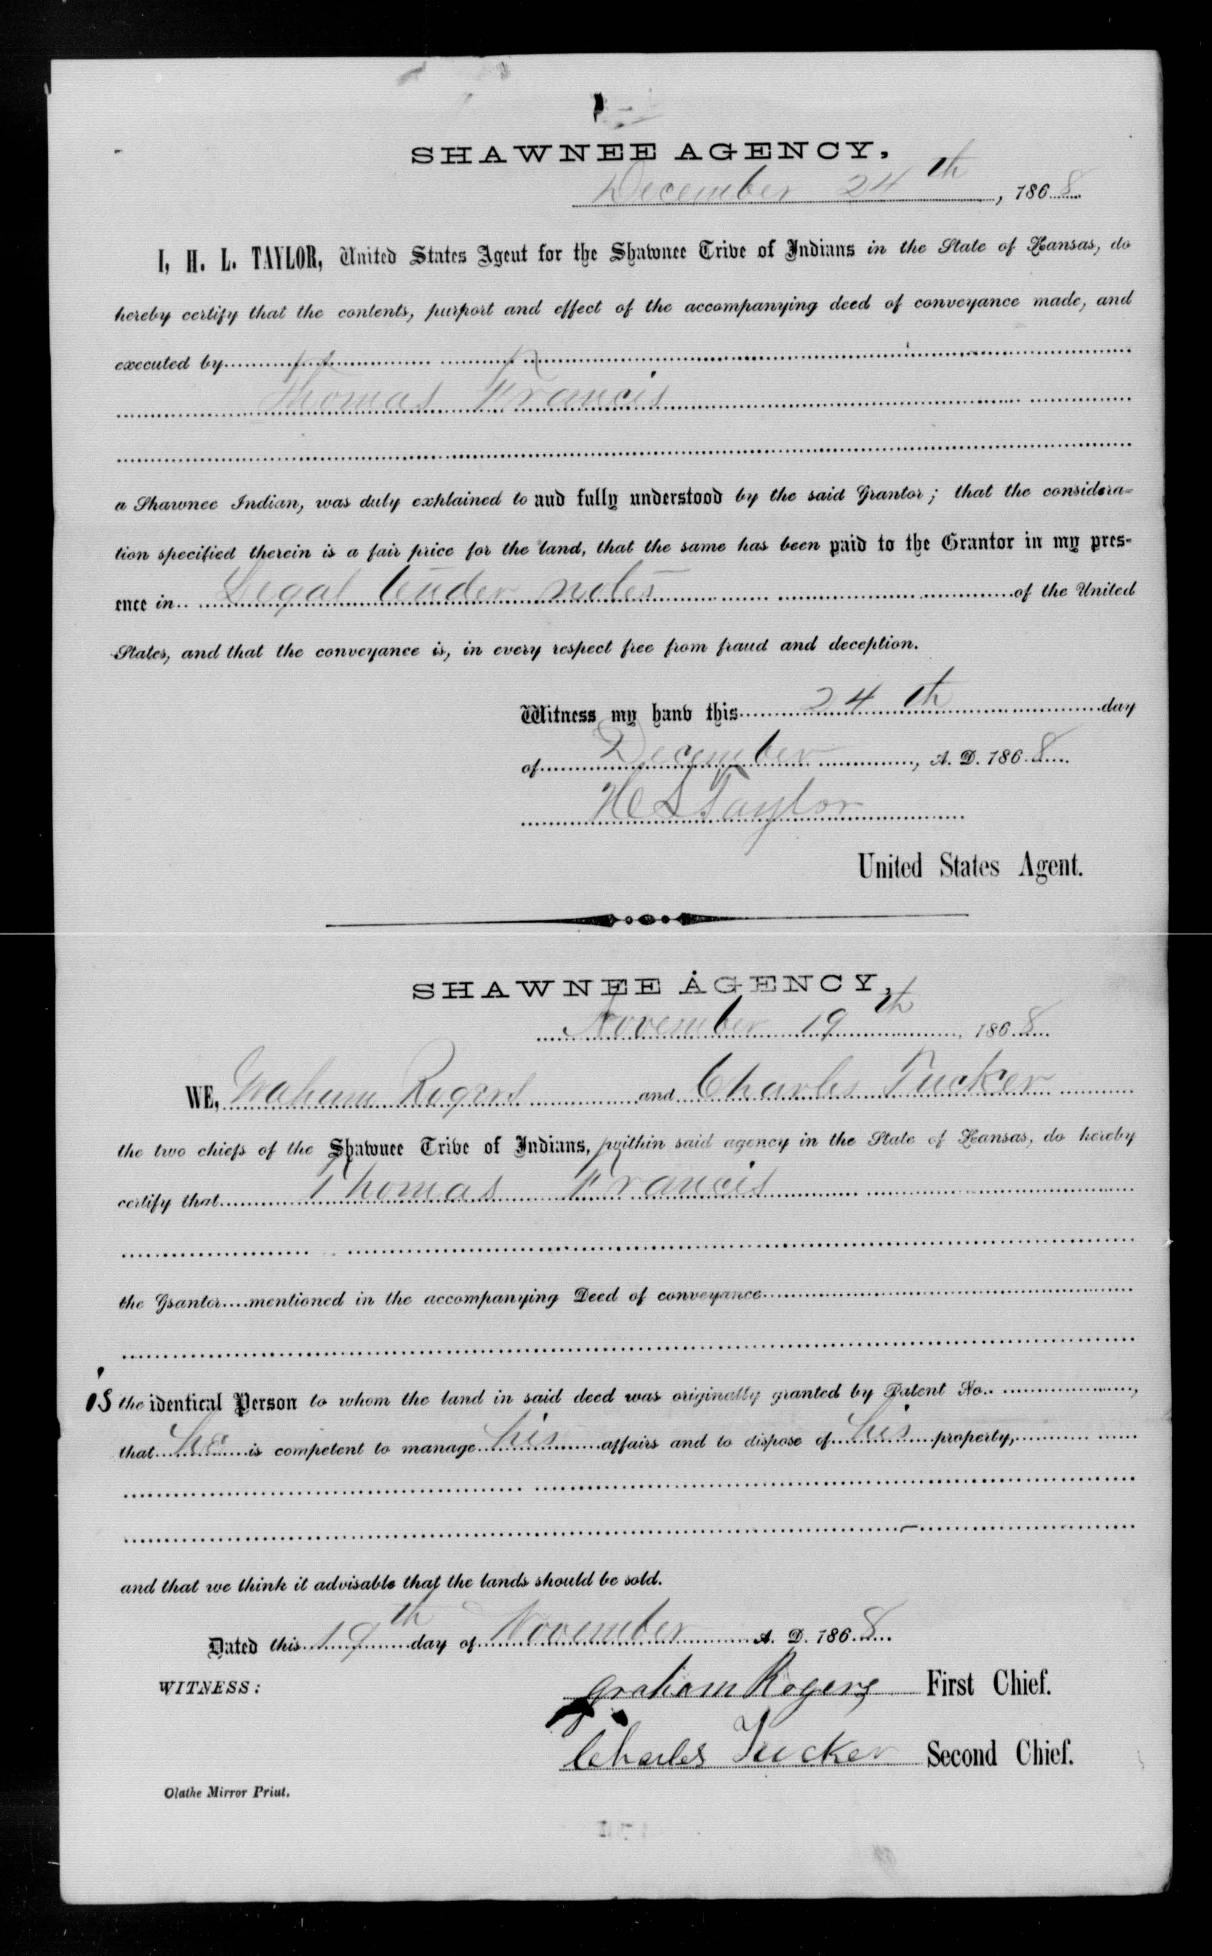 SHAWNEE AGENCY,
December 24th, 1868.
I, H. L. TAYLOR, United States Agent for the Shawnee Tribe of Indians in the State of Kansas, do
hereby certify that the contents, purport and effect of the accompanying deed of conveyance made, and
executed by
Thomas Francis
a Shawnee Indian, was duly explained to and fully understood by the said Grantor; that the considera-
tion specified therein is a fair price for the land, that the same has been paid to the Grantor in my pres-
ence in Legal tender notes of the United
States, and that the conveyance is, in every respect free from fraud and deception.
Witness my hand this 24th day
of December, A. D. 1868
H L Taylor
United States Agent.
SHAWNEE AGENCY,
November 19th, 1868
WE, Graham Rogers and Charles Tucker
the two chiefs of the Shawnee Tribe of Indians, within said agency in the State of Kansas, do hereby
certify that Thomas Francis
the Grantor mentioned in the accompanying Deed of conveyance
is the identical Person to whom the land in said deed was originally granted by Patent No.
that he is competent to manage his affairs and to dispose of his property,
and that we think it advisable that the lands should be sold.
Dated this 19th day of November A. D. 1868
WITNESS:
Graham Rogers First Chief.
Charles Tucker Second Chief.
Olathe Mirror Print.